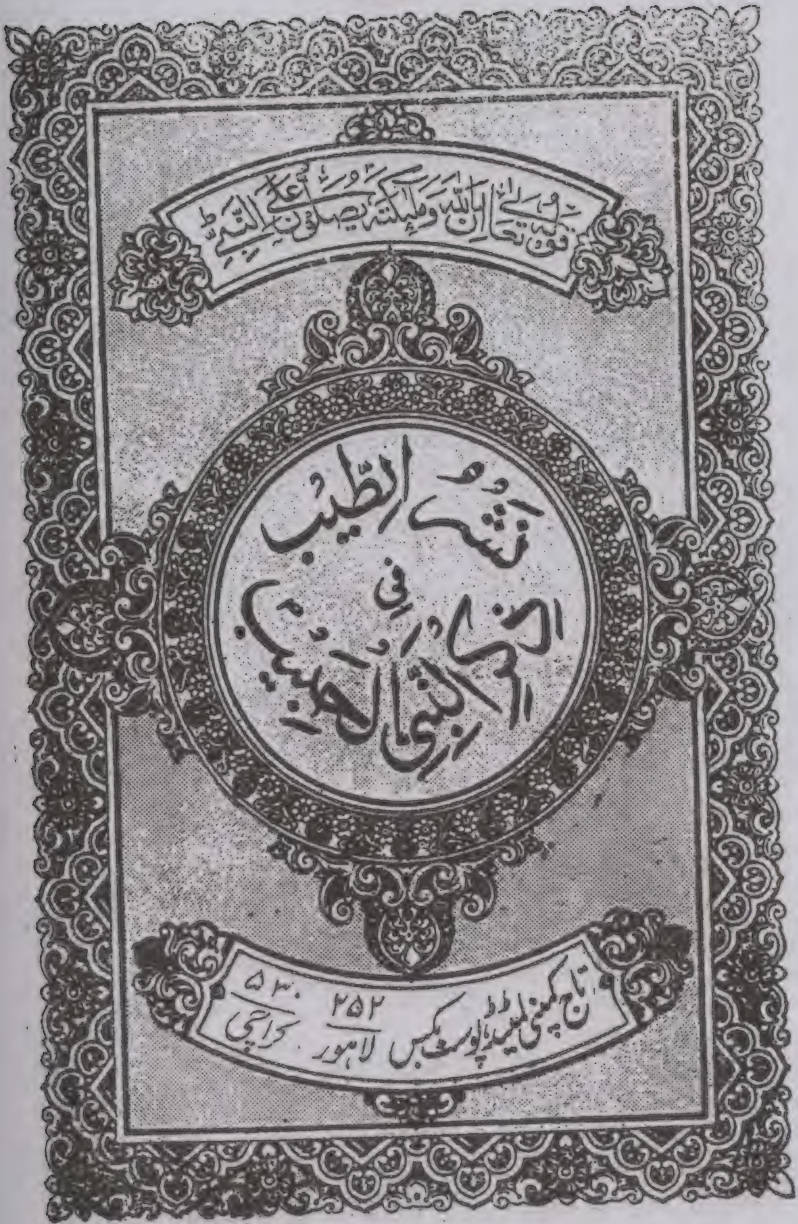 قولہ تعالیٰ اِنَّ اللّٰہَ وَمَلٰٓئِکَتَہٗ یُصَلُّوْنَ عَلَی النَّبِیِّ ط
نَشْرُ الطِّیْب
فِی
ذکر النبی الحبیب
تاج کمپنی لمیٹڈ پوسٹ بکس ۲۵۲ لاہور ۵۳۰ کراچی